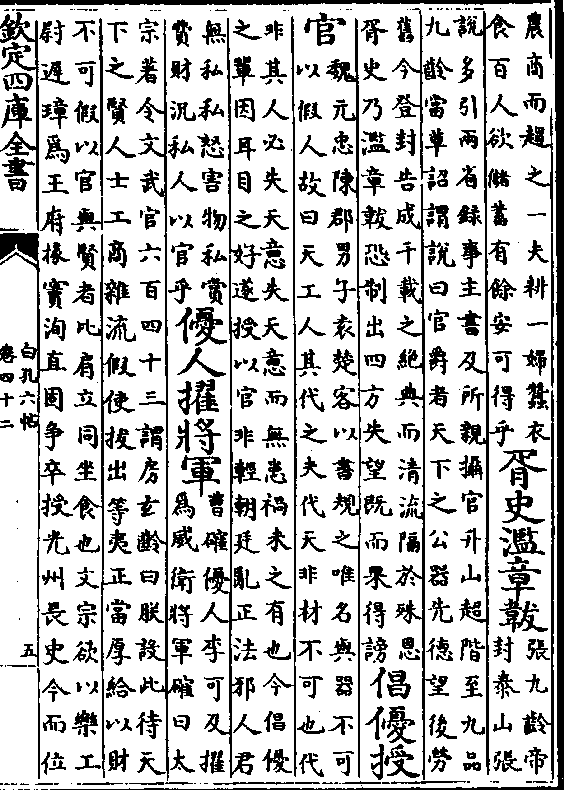 農商而趨之一夫耕一婦蠶衣
食百人欲儲蓄有餘安可得乎
胥史濫章韍
張九齡帝
封泰山張
說多引兩省錄事主書及所親攝官升山超階至九品
九齡當草詔謂說曰官爵者天下之公器先德望後勞
舊今登封告成千載之絕典而清流隔於殊恩
胥史乃濫章韍恐制出四方失望既而果得謗
倡優授
官
魏元忠陳郡男子袁楚客以書規之唯名與器不可
以假人故曰天工人其代之夫代天非材不可也代
非其人必失天意失天意而無患禍未之有也今倡優
之輩因耳目之好遂授以官非輕朝廷亂正法邪人君
無私私怒害物私賞
賞財況私人以官乎
優人擢將軍
曹確優人李可及擢
爲威衛將軍確曰太
宗著令文武官六百四十三謂房玄齡曰朕設此待天
下之賢人士工商雜流假使拔出等夷正當厚給以財
不可假以官與賢者比肩立同坐食也文宗欲以樂工
尉遲璋爲王府掾竇洵直固爭卒授光州長史今而位
欽定四庫全書
白孔六帖
卷四十二
五